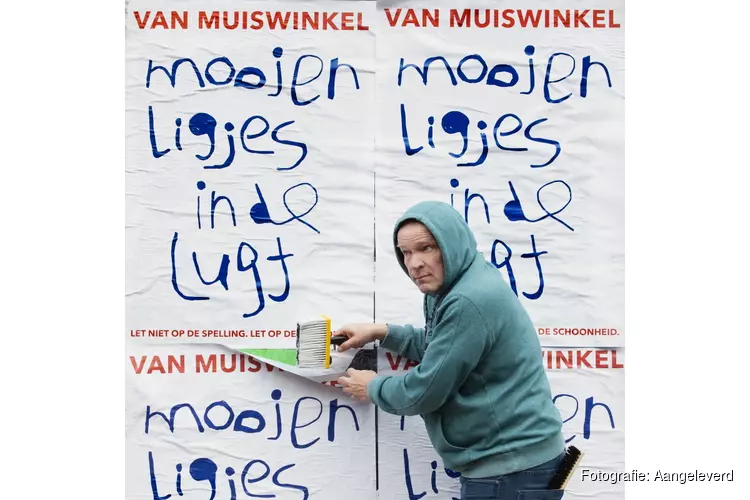 VAN MUISWINKEL
mooien
ligjes
in de
lugt
LET NIET OP DE SPELLING. LET OP DE
VAN MUISWINKEL
mooien
ligjes
in de
gt
DE SCHOONHEID.
VAN MUISWINKEL
mooien
ligjes
WINKEL
en
lig
Fotografie: Aangeleverd